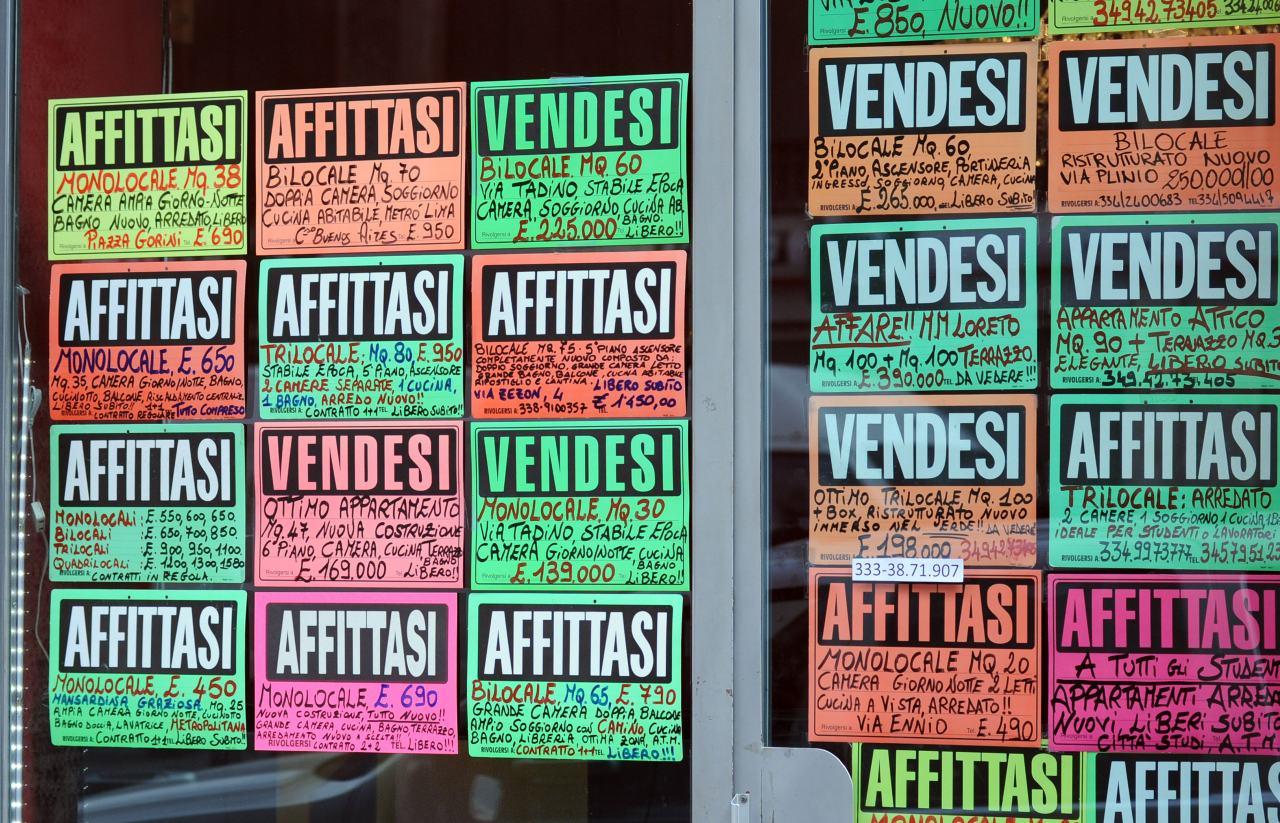 AFFITTASI
MONOLOCALE Mq. 38
CAMERA AMPIA GIORNO-NOTTE
BAGNO NUOVO, ARREDATO, LIBERO
Rivolgersi a PIAZZA GORINI Tel. £. 690
AFFITTASI
BILOCALE Mq. 70
DOPPIA CAMERA, SOGGIORNO
CUCINA ABITABILE, METRÒ LIMA
C.so BUENOS AIRES £. 950
VENDESI
BILOCALE MQ. 60
VIA TADINO, STABILE EPOCA
CAMERA SOGGIORNO CUCINA AB.
BAGNO.
£. 225.000 LIBERO!!
AFFITTASI
MONOLOCALE, £. 650
Mq. 35, CAMERA GIORNO/NOTTE, BAGNO,
CUCINOTTO, BALCONE, RISCALDAMENTO CENTRALE
LIBERO SUBITO!! 1+1 TUTTO COMPRESO
RIVOLGERSI A: CONTRATTO REGOLARE
AFFITTASI
TRILOCALE: MQ. 80, £. 950
STABILE EPOCA, 5° PIANO, ASCENSORE
2 CAMERE SEPARATE, 1 CUCINA,
1 BAGNO, ARREDO NUOVO!!
RIVOLGERSI A: CONTRATTO 1+1 TEL. LIBERO SUBITO!!
AFFITTASI
BILOCALE MQ. 75. 5° PIANO ASCENSORE
COMPLETAMENTE NUOVO COMPOSTO DA:
DOPPIO SOGGIORNO, GRANDE CAMERA LETTO
GRANDE BAGNO, BALCONE, CUCINA ABITABILE
RIPOSTIGLI E CANTINA. LIBERO SUBITO
VIA ZEZON, 4 £ 1150,00
RIVOLGERSI A: 338-9100357 TEL.
AFFITTASI
MONOLOCALI: £. 550, 600, 650.
BILOCALI : £. 650, 700, 850.
TRILOCALI : £. 900, 950, 1100.
QUADRILOCALI : £. 1200, 1300, 1580
RIVOLGERSI A: CONTRATTI IN REGOLA.
VENDESI
OTTIMO APPARTAMENTO
Mq. 47, NUOVA COSTRUZIONE
6° PIANO, CAMERA, CUCINA TERRAZZO
BAGNO
Rivolgersi a £. 169.000 LIBERO!!
VENDESI
MONOLOCALE, MQ. 30
VIA TADINO, STABILE EPOCA
CAMERA GIORNO/NOTTE CUCINA
BAGNO
Rivolgersi a £. 139.000 LIBERO!!
AFFITTASI
MONOLOCALE, £. 450
MANSARDINA GRAZIOSA, MQ. 25
AMPIA CAMERA GIORNO NOTTE, CUCINOTTO
BAGNO DOCCIA, LAVATRICE, METROPOLITANA
RIVOLGERSI A: CONTRATTO 1+1 TEL. LIBERO SUBITO!
AFFITTASI
MONOLOCALE, £. 690
NUOVA COSTRUZIONE, TUTTO NUOVO!!
GRANDE CAMERA, CUCINA, BAGNO, TERRAZZO,
ARREDAMENTO NUOVO A SCELTA!!
RIVOLGERSI CONTRATTO 2+2 TEL. LIBERO!!
AFFITTASI
BILOCALE, MQ 65, £. 790
GRANDE CAMERA DOPPIA, BALCONE
AMPIO SOGGIORNO CON CAMINO, CUCINA
BAGNO, LIBRERIA OTTIMA ZONA, A.T.M.
RIVOLGERSI A: CONTRATTO 1+1 TEL. LIBERO!!!
Rivolgersi £. 850, NUOVO!!
Rivolgersi 3494273405
VENDESI
BILOCALE MQ. 60
2° PIANO, ASCENSORE, PORTINERIA
INGRESSO, SOGGIORNO, CAMERA, CUCINA
RIVOLGERSI A: £. 265.000, LIBERO SUBITO
VENDESI
BILOCALE
RISTRUTTURATO NUOVO
VIA PLINIO 250.000,00
RIVOLGERSI A: 33412400683 TEL. 3345094417
VENDESI
AFFARE!! MM LORETO
Mq. 100 + Mq. 100 TERRAZZO.
RIVOLGERSI A: £. 390.000 TEL. DA VEDERE!!!
VENDESI
APPARTAMENTO ATTICO
MQ. 90 + TERRAZZO MQ.
ELEGANTE, LIBERO SUBITO
RIVOLGERSI A: 349.42.73.405
VENDESI
OTTIMO TRILOCALE, MQ. 100
+ BOX, RISTRUTTURATO NUOVO
IMMERSO NEL VERDE!! DA VEDERE
£. 198.000
AFFITTASI
TRILOCALE: ARREDATO
2 CAMERE 1 SOGGIORNO 1 CUCINA
IDEALE PER STUDENTI O LAVORATORI
RIVOLGERSI A: 334.9973777
333-38.71.907
AFFITTASI
MONOLOCALE MQ. 20
CAMERA GIORNO NOTTE 2 LETTI
CUCINA A VISTA, ARREDATO!!
Rivolgersi a VIA ENNIO Tel. £. 490
AFFITTASI
A TUTTI GLI STUDEN
APPARTAMENTI ARRED
NUOVI LIBERI SUBITO
CITTÀ STUDI, A.T.M.
AFFITTASI
AFFITTAS